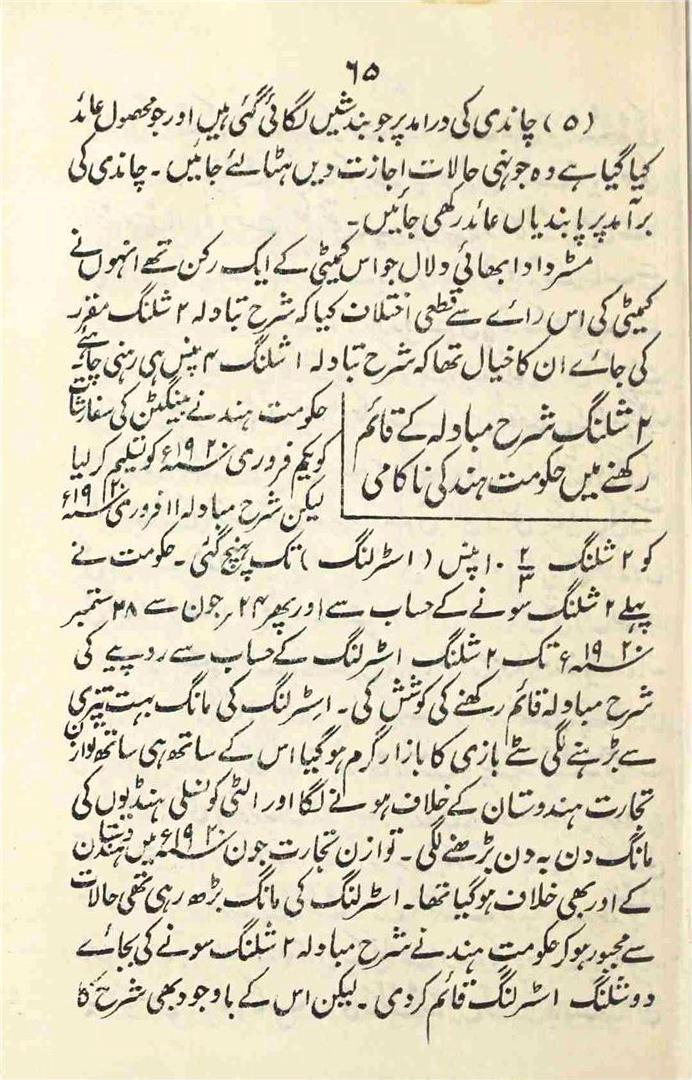 ۶۵
(۵) چاندی کی درامد پر جو بندشیں لگائی گئی ہیں اور جو محصول عائد
کیا گیا ہے وہ جونہی حالات اجازت دیں ہٹا لئے جائیں ۔ چاندی کی
برآمد پر پابندیاں عائد رکھی جائیں ۔
مسٹر دادا بھائی دلال جو اس کمیٹی کے ایک رکن تھے انہوں نے
کمیٹی کی اس رائے سے قطعی اختلاف کیا کہ شرح تبادلہ ۲ شلنگ مقرر
کی جائے ان کا خیال تھا کہ شرح تبادلہ ۱ شلنگ ۴ پنس ہی رہنی چاہئے ۔
۲ شلنگ شرح مبادلہ کے قائم
رکھنے میں حکومت ہند کی ناکامی
حکومت ہند نے بینگٹن کی سفارشات
کو یکم فروری ۱۹۲۰ء کو تسلیم کر لیا
لیکن شرح مبادلہ ۱۱ فروری ۱۹۲۰ء
کو ۲ شلنگ ۱۰ ۲/۳ پنس (اسٹرلنگ) تک پہنچ گئی ۔ حکومت نے
پہلے ۲ شلنگ سونے کے حساب سے اور پھر ۲۴ جون سے ۲۸ ستمبر
۱۹۲۰ء تک ۲ شلنگ اسٹرلنگ کے حساب سے روپیے کی
شرح مبادلہ قائم رکھنے کی کوشش کی ۔ اسٹرلنگ کی مانگ بہت تیزی
سے بڑہنے لگی سٹے بازی کا بازار گرم ہو گیا اس کے ساتھ ہی ساتھ توازن
تجارت ہندوستان کے خلاف ہونے لگا اور الٹی کونسلی ہنڈیوں کی
مانگ دن بہ دن بڑھنے لگی ۔ توازن تجارت جون ۱۹۲۰ء میں ہندوستان
کے اور بھی خلاف ہو گیا تھا ۔ اسٹرلنگ کی مانگ بڑھ رہی تھی حالات
سے مجبور ہو کر حکومت ہند نے شرح مبادلہ ۲ شلنگ سونے کی بجائے
دو شلنگ اسٹرلنگ قائم کر دی ۔ لیکن اس کے باوجود بھی شرح کا